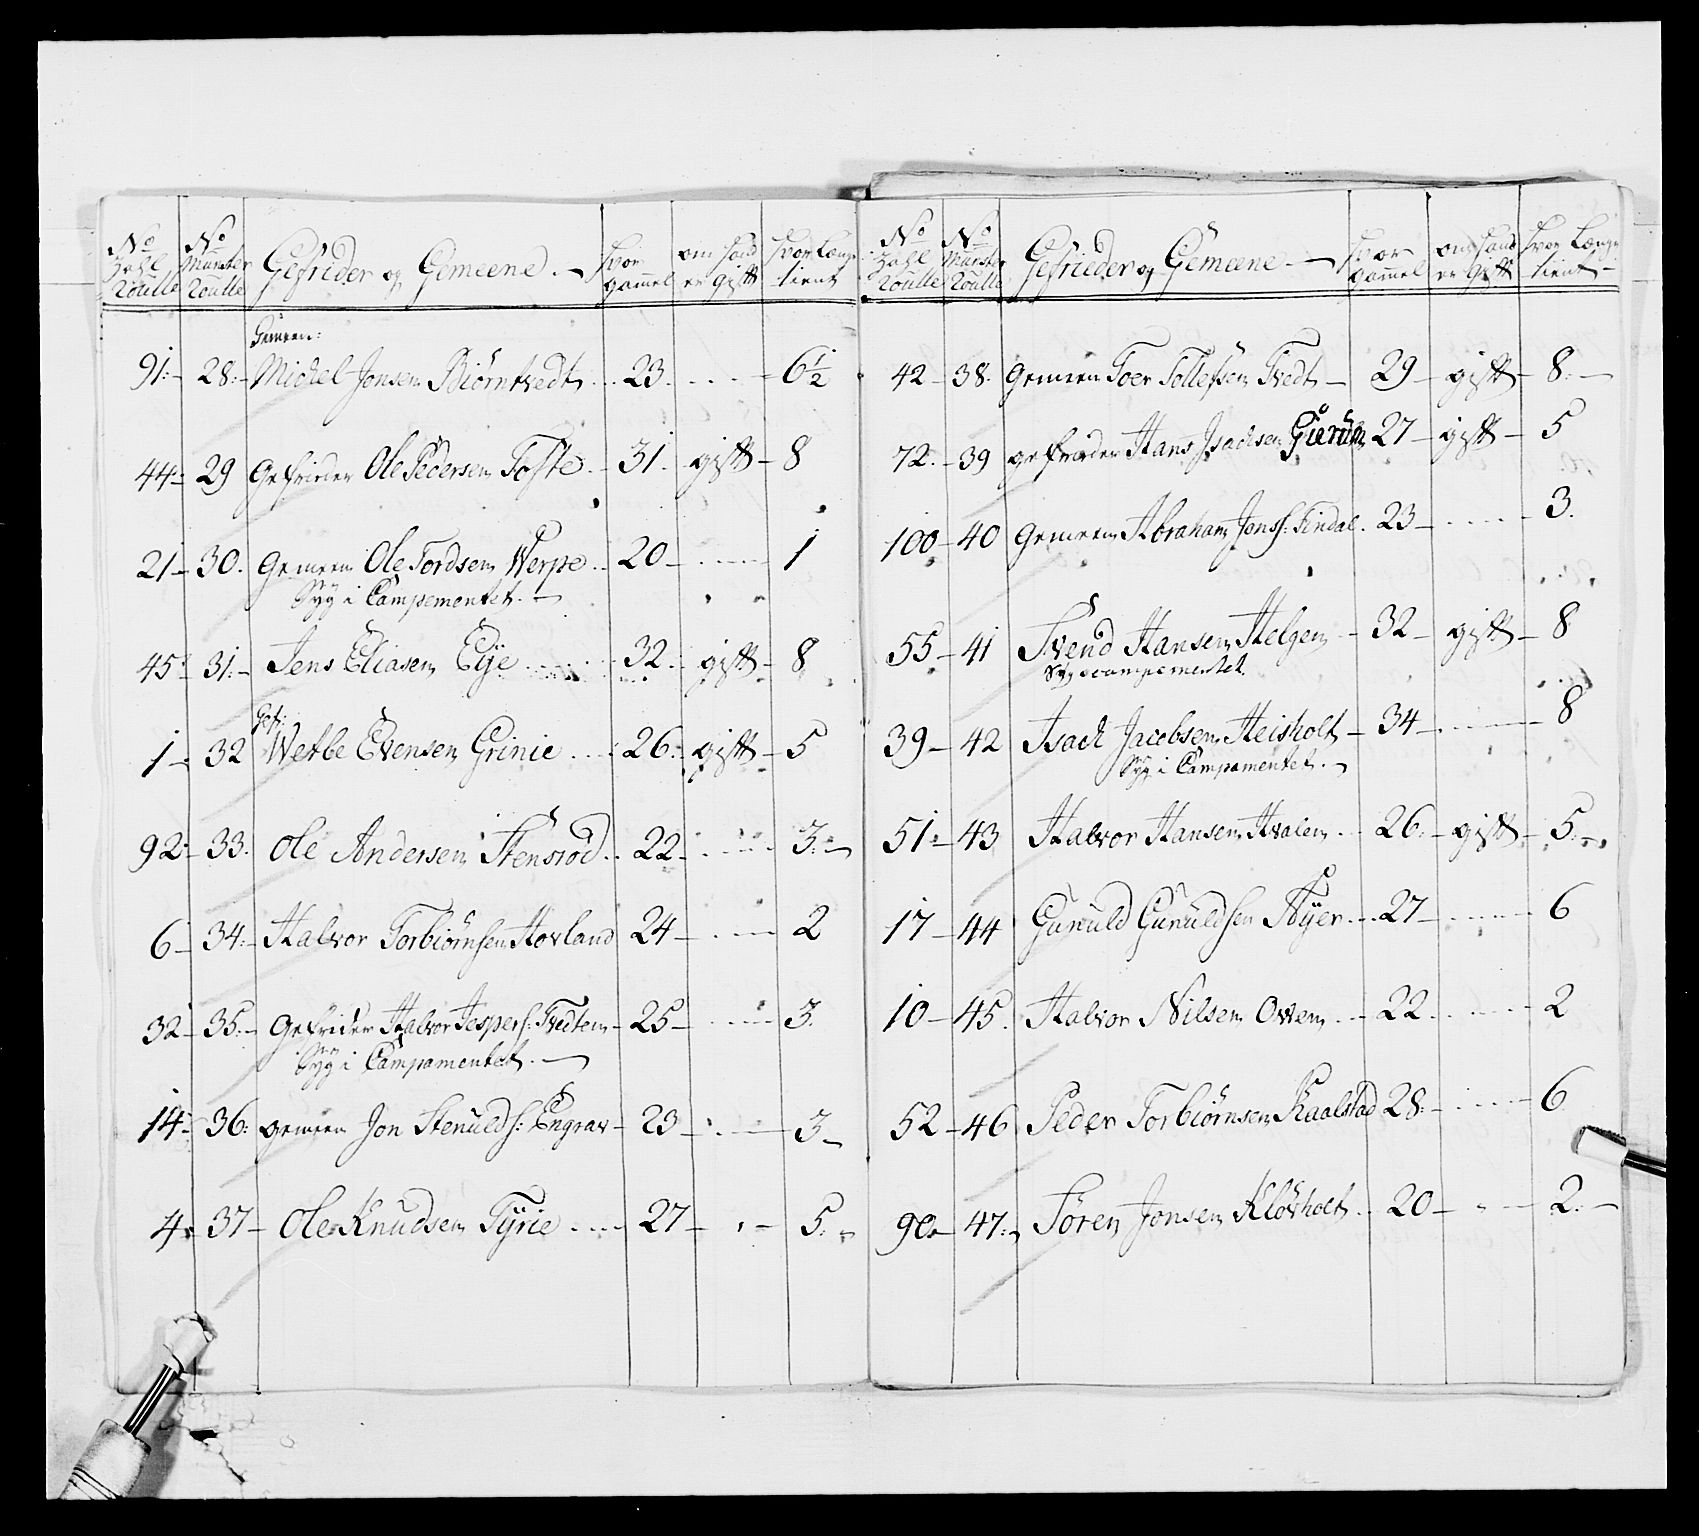 No Zahl Roulle | No Munster Roulle | Gefrider og Gemeene. | hvor gammel | om hand er gift | hvor Længe tient
Gemeen:
91 28 Michel Jonsen Biørntvedt 23 6½
44 29 Gefrider Ole Pedersen Tofte 31 gift 8
21 30. Gemeen Ole Tordsen Werpe 20 1
Syg i Campementet.
45 31 Jens Eliasen Eije 32 gift 8
Gefr:
1 32 Wetle Evensen Grinie 26 gift 5
92 33. Ole Andersen Stensrød 22 3
6 34 Halvor Torbiørnsen Hovland 24 2
32 35 Gefrider Halvor Jespers: Tvedten 25 3.
Syg i Campamentet.
14 36 gemeen Jon Stenulds: Engrav 23 3
4 37 Ole Knudsen Tÿrie 27 5
No Zahl Roulle | No Munster Roulle | Gefrieder og Gemeene | hvor gammel | om hand er gift | hvor Længe tient
42 38. Gemeen Toer Tollefsen Tvedt 29 gift 8
72. 39 gefrieder Hans Isachsen 27 gift 5
100 40 Gemeen Abraham Jens: Findal 23 3.
55 41 Svend Hansen Helgen 32 gift 8
Syg i campementet
39 42 Isach Jacobsen Heisholt 34 8
Syg i Campamentet.
51 43 Halvor Hansen Hvalen 26 gift 5
17 44 Gunuld Gunuldsen 27 6
10 45. Halvor Nilsen Owen 22 2
52 46 Peder Torbiørnsen Kaalstad 28 6
90 47 Søren Jonsen Kløvholt 20 2